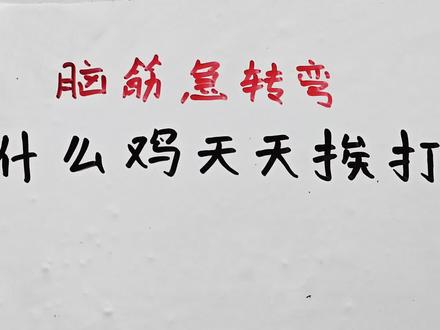 脑筋急转弯
什么鸡天天挨打